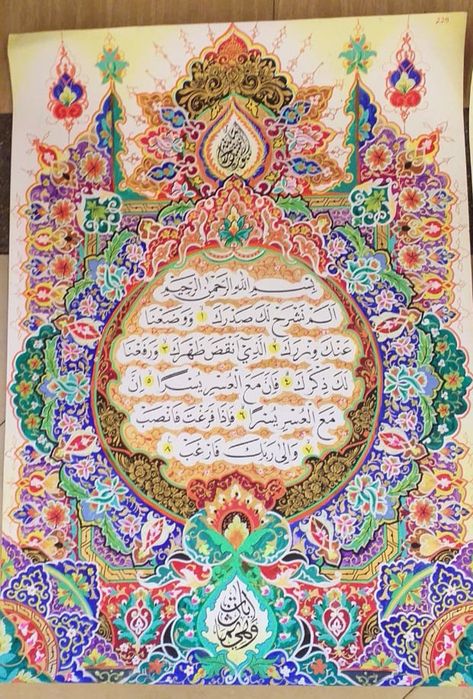 بِسْمِ اللهِ الرَّحْمٰنِ الرَّحِيْمِ
اَلَمْ نَشْرَحْ لَكَ صَدْرَكَ ١ وَوَضَعْنَا
عَنْكَ وِزْرَكَ ٢ الَّذِيْٓ اَنْقَضَ ظَهْرَكَ ٣ وَرَفَعْنَا
لَكَ ذِكْرَكَ ٤ فَاِنَّ مَعَ الْعُسْرِ يُسْرًا ٥ اِنَّ
مَعَ الْعُسْرِ يُسْرًا ٦ فَاِذَا فَرَغْتَ فَانْصَبْ
٧ وَاِلٰى رَبِّكَ فَارْغَبْ ٨